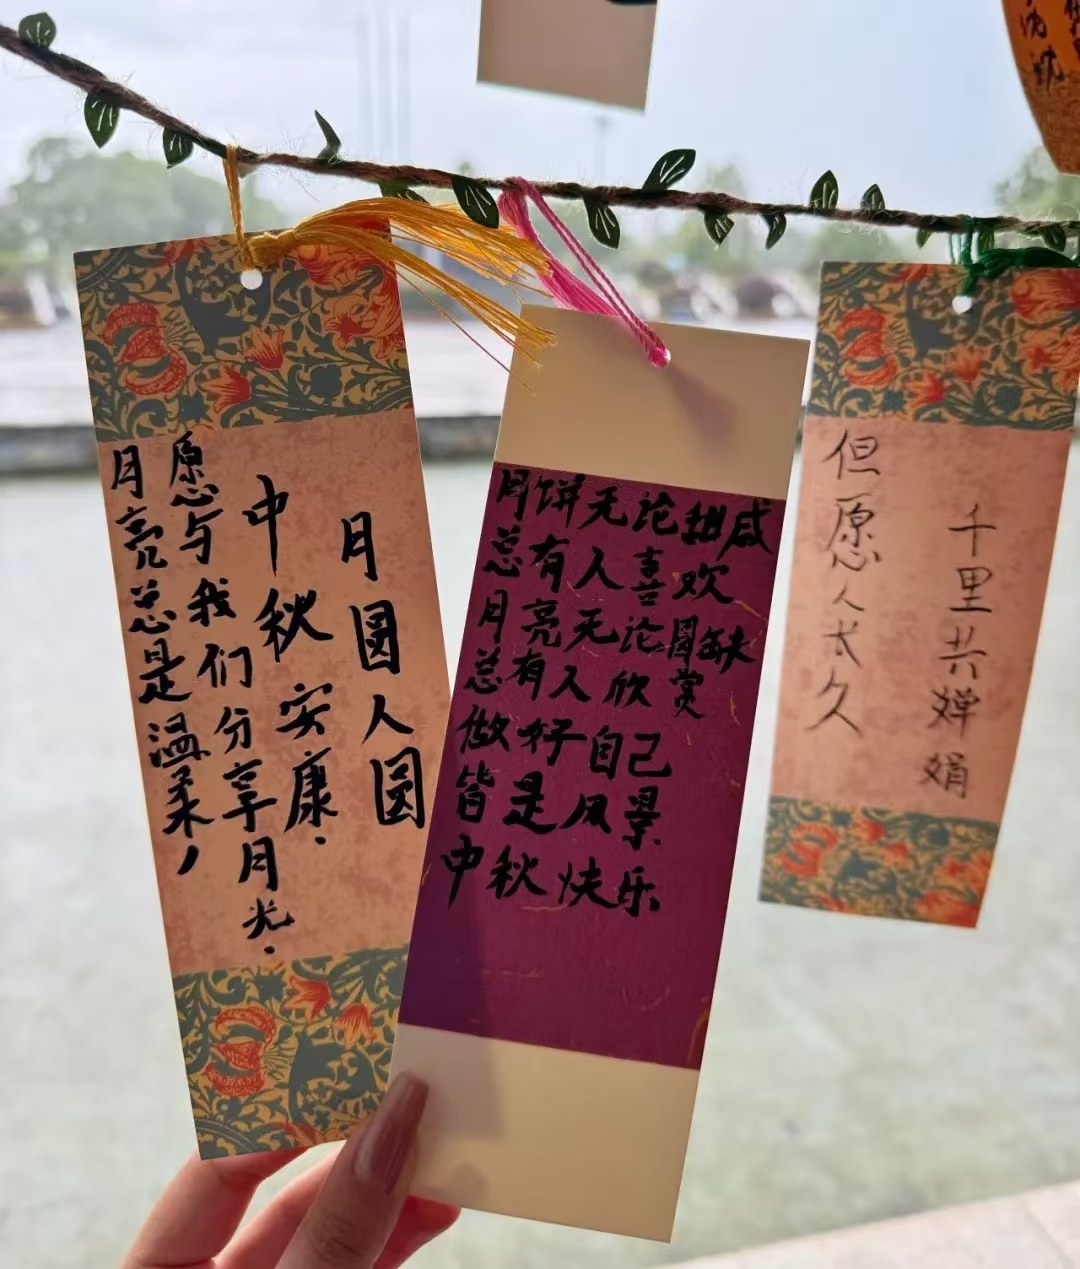 月亮总是温柔,
愿与我们分享月光.
中秋安康.
月圆人圆
月饼无论甜咸
总有人喜欢
月亮无论圆缺
总有人欣赏
做好自己
皆是风景.
中秋快乐.
但愿人长久
千里共婵娟